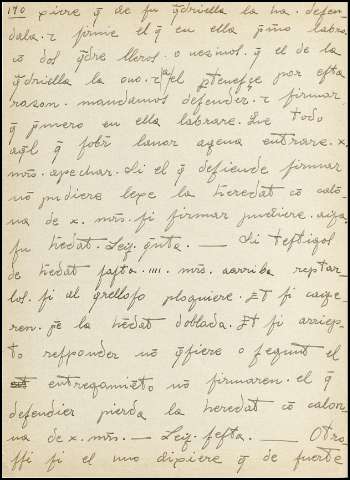 190 xiere q̄ de fu q̄driella la ha. defen-
dala. ⁊ firme el q̄ en ella p̄mo labra
cō dos q̄dre lleros. o uezinos. q̄ el de la
q̄driella la ouo. ⁊ a el ꝑtenefçe por efta
razon. mandamos defender. ⁊ firmar
q̄ p̄mero en ella labrare. Que todo
aq̄l q̄ fobr̄ lauor agena entrare. x.
mr̄s. apechar. Si el q̄ defiende firmar
nō pudiere lexe la heredat cō calō-
na de x. mr̄s. fi firmar pudiere. aya
fu h̄edat. Ley. q̄nta. — Si teftigos
de h̄edat fafta .iiii. mr̄s. aarriba reptar
los. fi al q̄rellofo ploguiere. Et fi caye-
ren. p̄e la h̄edat doblada. Et fi arriep-
to refponder nō q̄fiere o fegunt el
entregamiēto nō firmaren. el q̄
defendier pierda la heredat cō calon-
na de x. mr̄s — Ley. fefta. — Otro
ffi fi el uno dixiere q̄ de fuerte